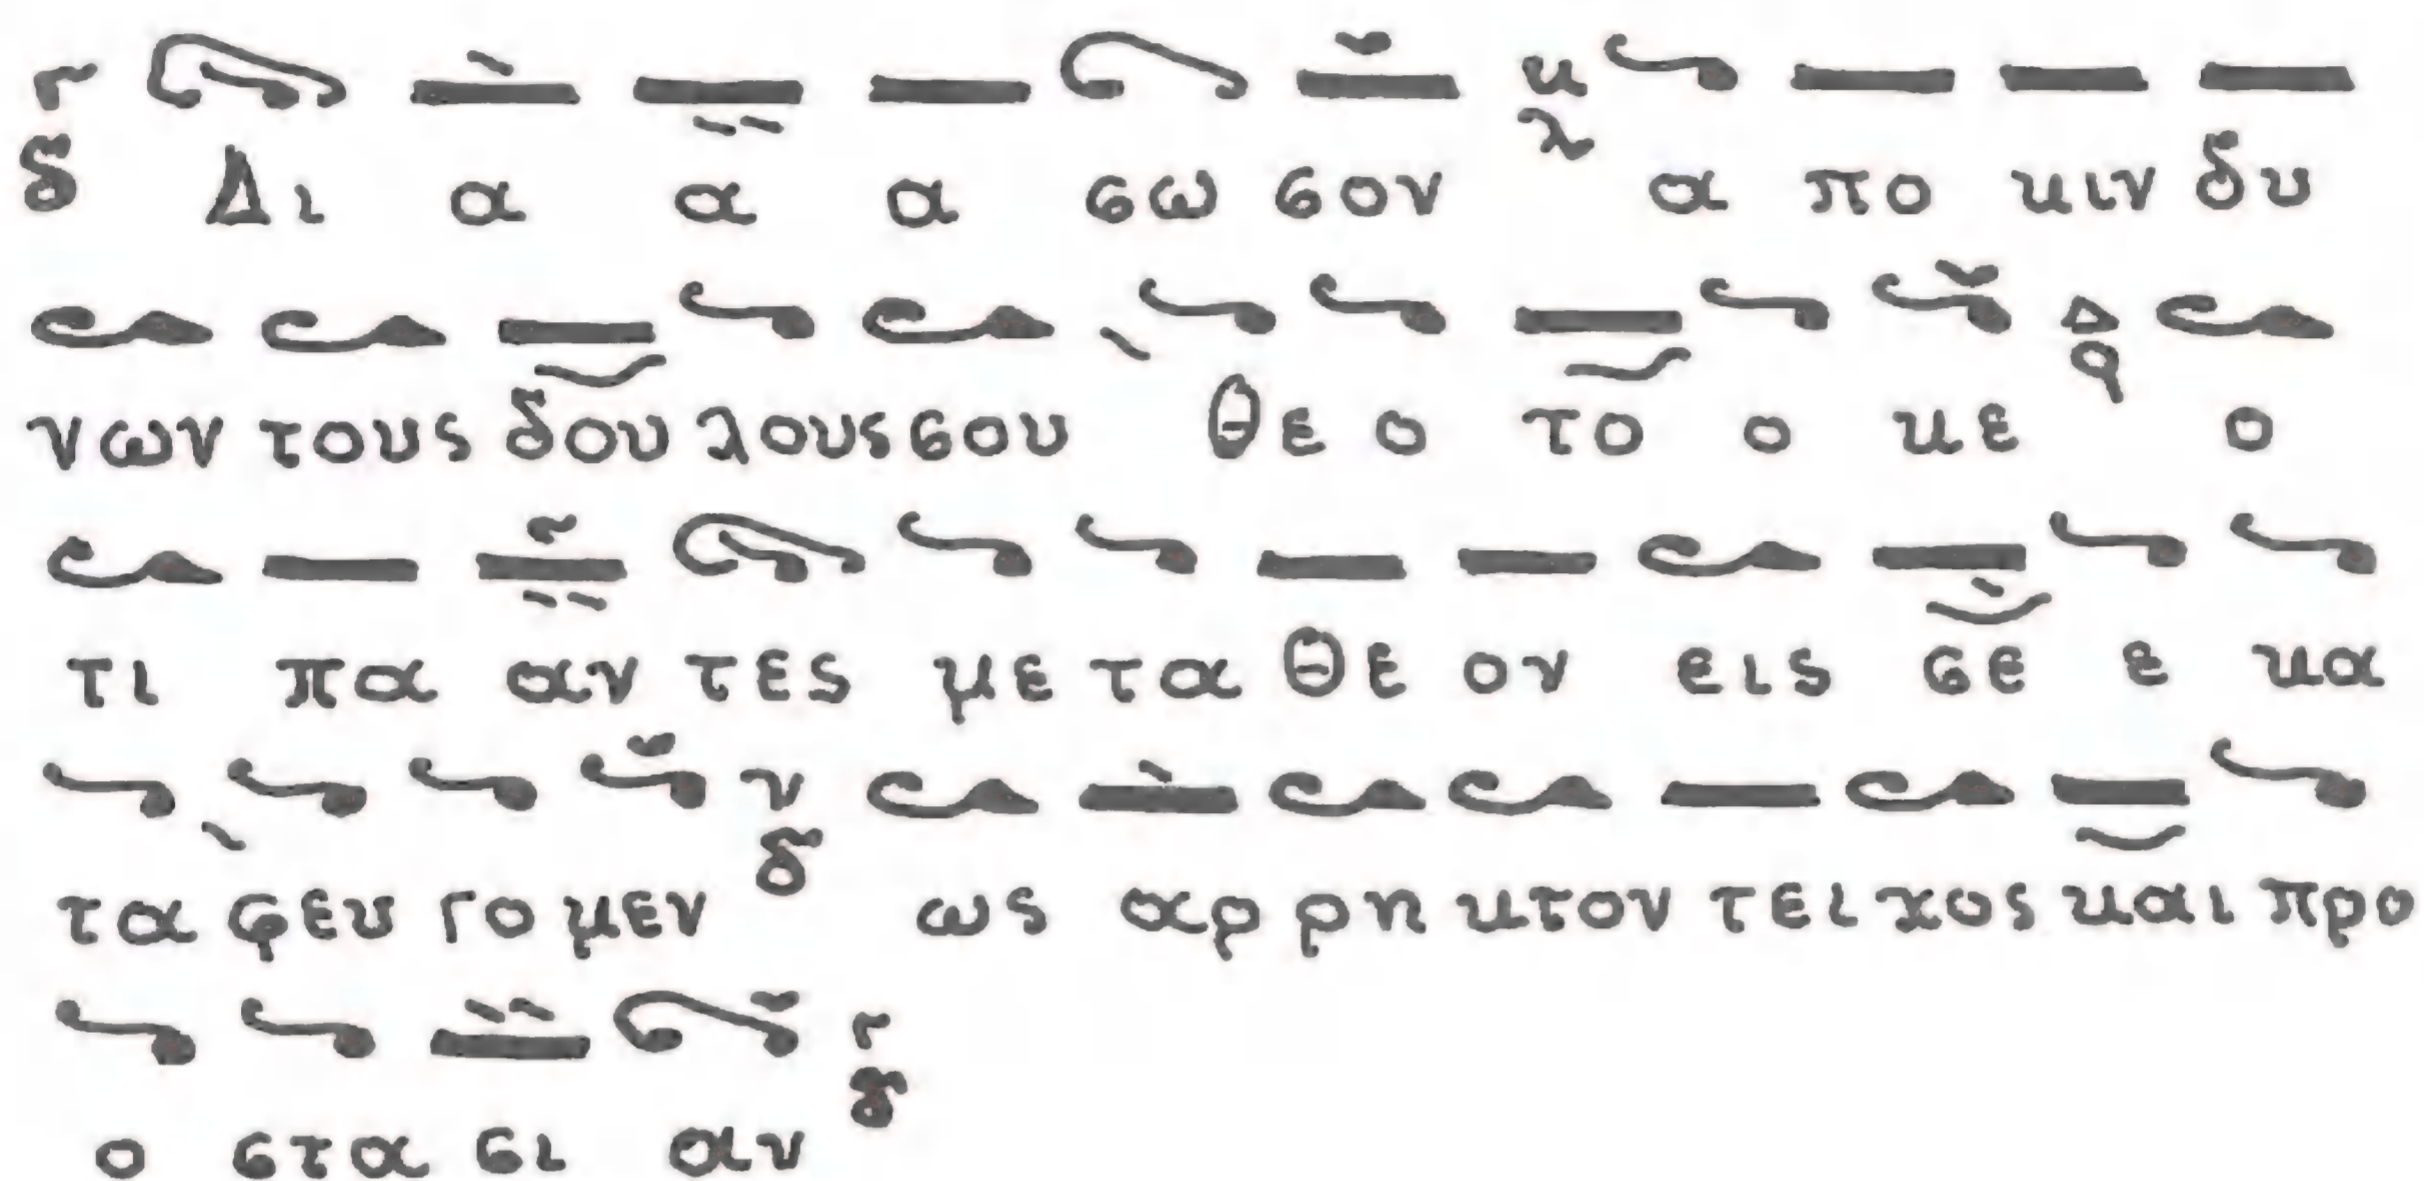 δ Δι α α α σω σον α πο κιν δυ
νων τους δου λους σου Θε ο το ο κε ο
τι πα αν τες με τα Θε ον εις σε ε κα
τα φευ γο μεν ως αρ ρη κτον τει χος και προ
ο στα σι αν